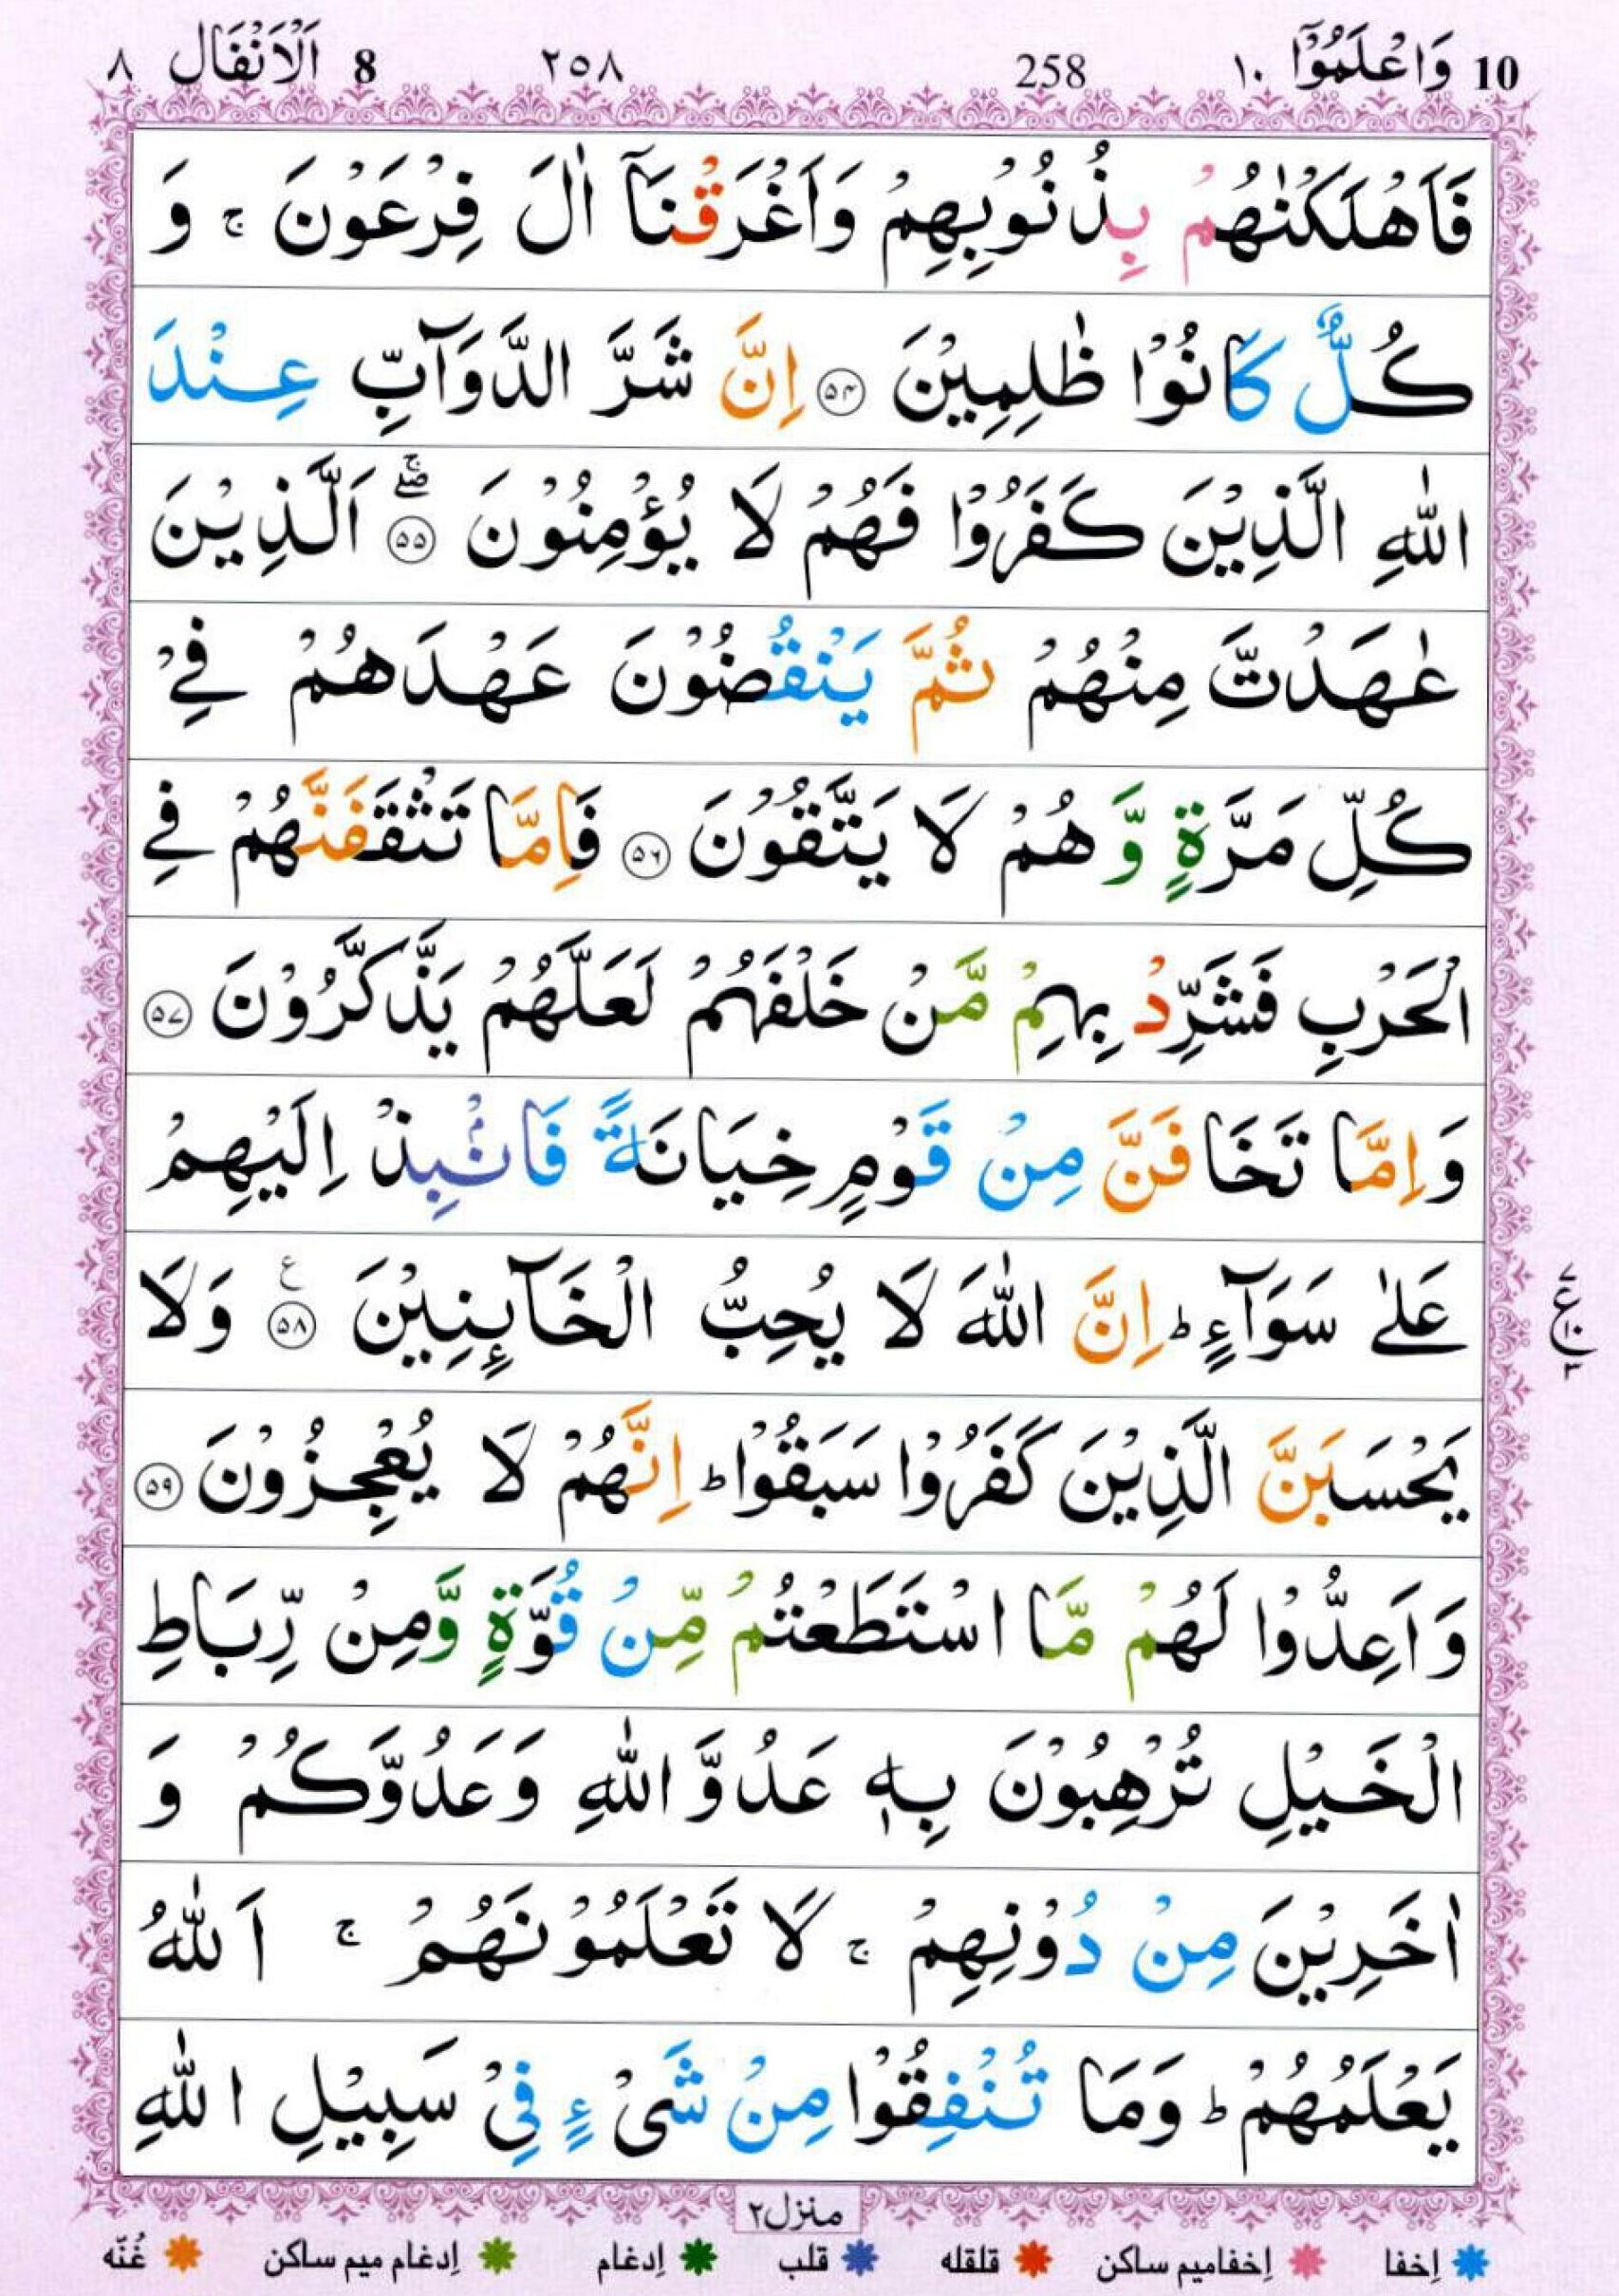 10 وَاعْلَمُوْٓا ١٠ 258 ٢٥٨ 8 اَلْاَنْفَال ٨
فَاَهْلَكْنٰهُمْ بِذُنُوْبِهِمْ وَاَغْرَقْنَاۤ اٰلَ فِرْعَوْنَ ۚ وَ
كُلٌّ كَانُوْا ظٰلِمِيْنَ ﴿۵۴﴾ اِنَّ شَرَّ الدَّوَآبِّ عِنْدَ
اللّٰهِ الَّذِيْنَ كَفَرُوْا فَهُمْ لَا يُؤْمِنُوْنَ ﴿۵۵﴾ۖۚ اَلَّذِيْنَ
عٰهَدْتَّ مِنْهُمْ ثُمَّ يَنْقُضُوْنَ عَهْدَهُمْ فِيْ
كُلِّ مَرَّةٍ وَّهُمْ لَا يَتَّقُوْنَ ﴿۵۶﴾ فَاِمَّا تَثْقَفَنَّهُمْ فِي
الْحَرْبِ فَشَرِّدْ بِهِمْ مَّنْ خَلْفَهُمْ لَعَلَّهُمْ يَذَّكَّرُوْنَ ﴿۵۷﴾
وَاِمَّا تَخَافَنَّ مِنْ قَوْمٍ خِيَانَةً فَانْۢبِذْ اِلَيْهِمْ
عَلٰى سَوَآءٍ ؕ اِنَّ اللّٰهَ لَا يُحِبُّ الْخَآئِنِيْنَ ﴿۵۸﴾ ع وَلَا
يَحْسَبَنَّ الَّذِيْنَ كَفَرُوْا سَبَقُوْا ؕ اِنَّهُمْ لَا يُعْجِزُوْنَ ﴿۵۹﴾
وَاَعِدُّوْا لَهُمْ مَّا اسْتَطَعْتُمْ مِّنْ قُوَّةٍ وَّمِنْ رِّبَاطِ
الْخَيْلِ تُرْهِبُوْنَ بِهٖ عَدُوَّ اللّٰهِ وَعَدُوَّكُمْ وَ
اٰخَرِيْنَ مِنْ دُوْنِهِمْ ۚ لَا تَعْلَمُوْنَهُمْ ۚ اَللّٰهُ
يَعْلَمُهُمْ ؕ وَمَا تُنْفِقُوْا مِنْ شَیْءٍ فِيْ سَبِيْلِ اللّٰهِ
٧ ع ١٠ ٣
منزل٢
اِخفا اِخفامیم ساکن قلقله قلب اِدغام اِدغام میم ساکن غُنّه